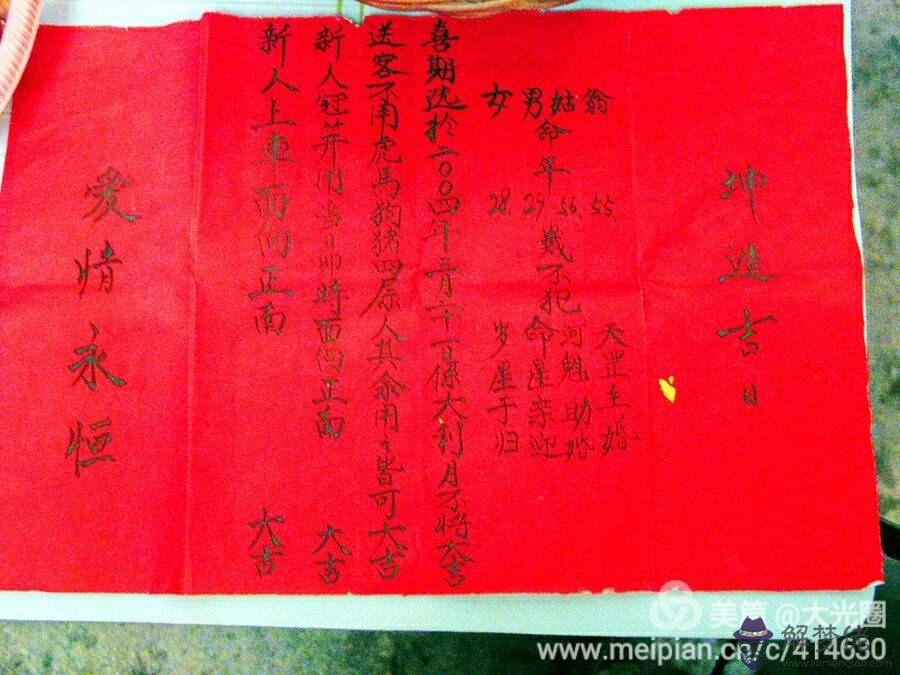 坤造吉日
翁 55. 天罡主婚
姑 56. 河魁助婚
男命年 29. 岁不犯 命星亲迎
女 28. 岁星于归
喜期选於二〇〇四年三月二十一日係大利月不将大吉
送客不用虎馬狗猪四属人其余用之皆可大吉
新人冠笄用当日卯時面向正南 大吉
新人上車面向正南 大吉
愛情永恒
美篇 @大光圈
www.meipian.cn/c/414630
解梦佬